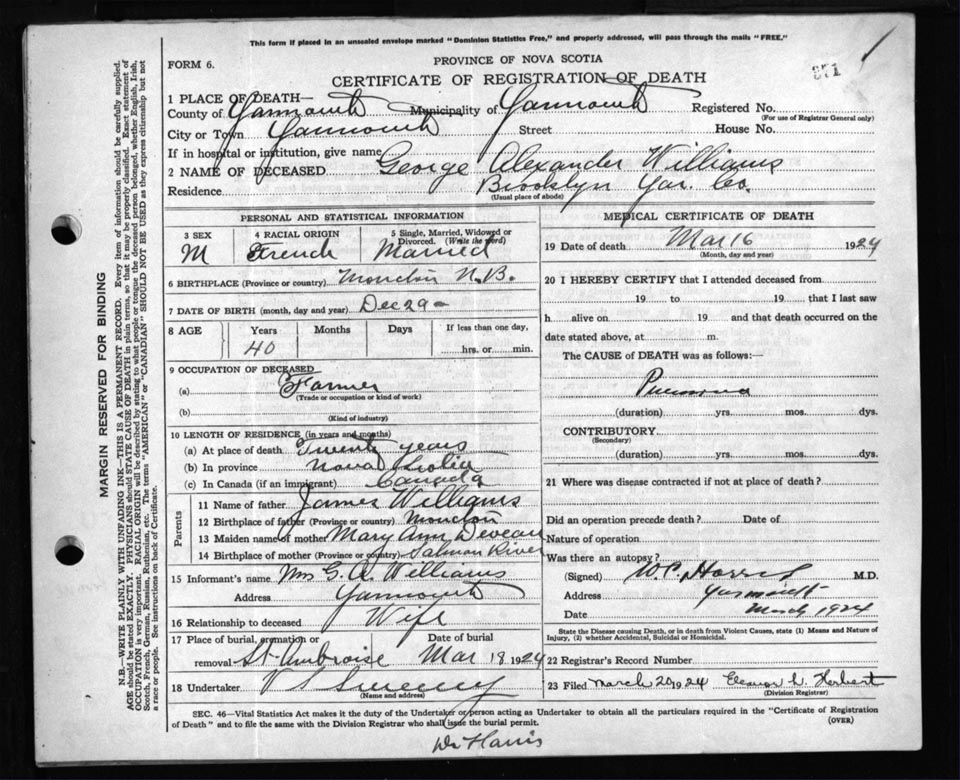 This form if placed in an unsealed envelope marked "Dominion Statistics Free," and properly addressed, will pass through the mails "FREE."
FORM 6.
PROVINCE OF NOVA SCOTIA
CERTIFICATE OF REGISTRATION OF DEATH
1 PLACE OF DEATH—
County of Yarmouth Municipality of Yarmouth Registered No.
(For use of Registrar General only)
City or Town Yarmouth Street House No.
If in hospital or institution, give name
2 NAME OF DECEASED George Alexander Williams
Residence Brooklyn Yar. Co.
(Usual place of abode)
PERSONAL AND STATISTICAL INFORMATION
3 SEX 4 RACIAL ORIGIN 5 Single, Married, Widowed or Divorced. (Write the word)
M French Married
6 BIRTHPLACE (Province or country) Moncton N.B.
7 DATE OF BIRTH (month, day and year) Dec 29 -
8 AGE Years Months Days If less than one day,
40 hrs. or min.
9 OCCUPATION OF DECEASED
(a) Farmer
(Trade or occupation or kind of work)
(b)
(Kind of industry)
10 LENGTH OF RESIDENCE (in years and months)
(a) At place of death Twenty years
(b) In province Nova Scotia
(c) In Canada (if an immigrant) Canada
Parents
11 Name of father James Williams
12 Birthplace of father (Province or country) Moncton
13 Maiden name of mother Mary Ann Deveau
14 Birthplace of mother (Province or country) Salmon River
15 Informant's name Mrs G. A. Williams
Address Yarmouth
16 Relationship to deceased Wife
17 Place of burial, cremation or removal St-Ambroise Date of burial Mar 18 1924
18 Undertaker V S Sweeny
(Name and address)
MEDICAL CERTIFICATE OF DEATH
19 Date of death Mar 16 1924
(Month, day and year)
20 I HEREBY CERTIFY that I attended deceased from
19 to 19 that I last saw
h alive on 19 and that death occurred on the
date stated above, at m.
The CAUSE of DEATH was as follows:
(duration) yrs. mos. dys.
CONTRIBUTORY
(Secondary)
(duration) yrs. mos. dys.
21 Where was disease contracted if not at place of death?
Did an operation precede death? Date of
Nature of operation
Was there an autopsy?
(Signed) M.D.
Address Yarmouth
Date March 1924
State the Disease causing Death, or in death from Violent Causes, state (1) Means and Nature of
Injury, (2) whether Accidental, Suicidal or Homicidal.
22 Registrar's Record Number
23 Filed March 20 1924 Eleanor L. Herbert
(Division Registrar)
SEC. 46—Vital Statistics Act makes it the duty of the Undertaker or person acting as Undertaker to obtain all the particulars required in the "Certificate of Registration
of Death" and to file the same with the Division Registrar who shall issue the burial permit.
(OVER)
Dr Harris
MARGIN RESERVED FOR BINDING
N.B.—WRITE PLAINLY WITH UNFADING INK—THIS IS A PERMANENT RECORD. Every item of information should be carefully supplied.
AGE should be stated EXACTLY. PHYSICIANS should STATE CAUSE OF DEATH in plain terms, so that it may be properly classified. Exact statement of
OCCUPATION is very important. RACIAL ORIGIN will be described by stating to what people or tongue the deceased person belonged, whether English, Irish,
Scotch, French, German, Russian, Ruthenian, etc. The terms "AMERICAN" or "CANADIAN" SHOULD NOT BE USED as they express citizenship but not
a race or people. See instructions on back of Certificate.